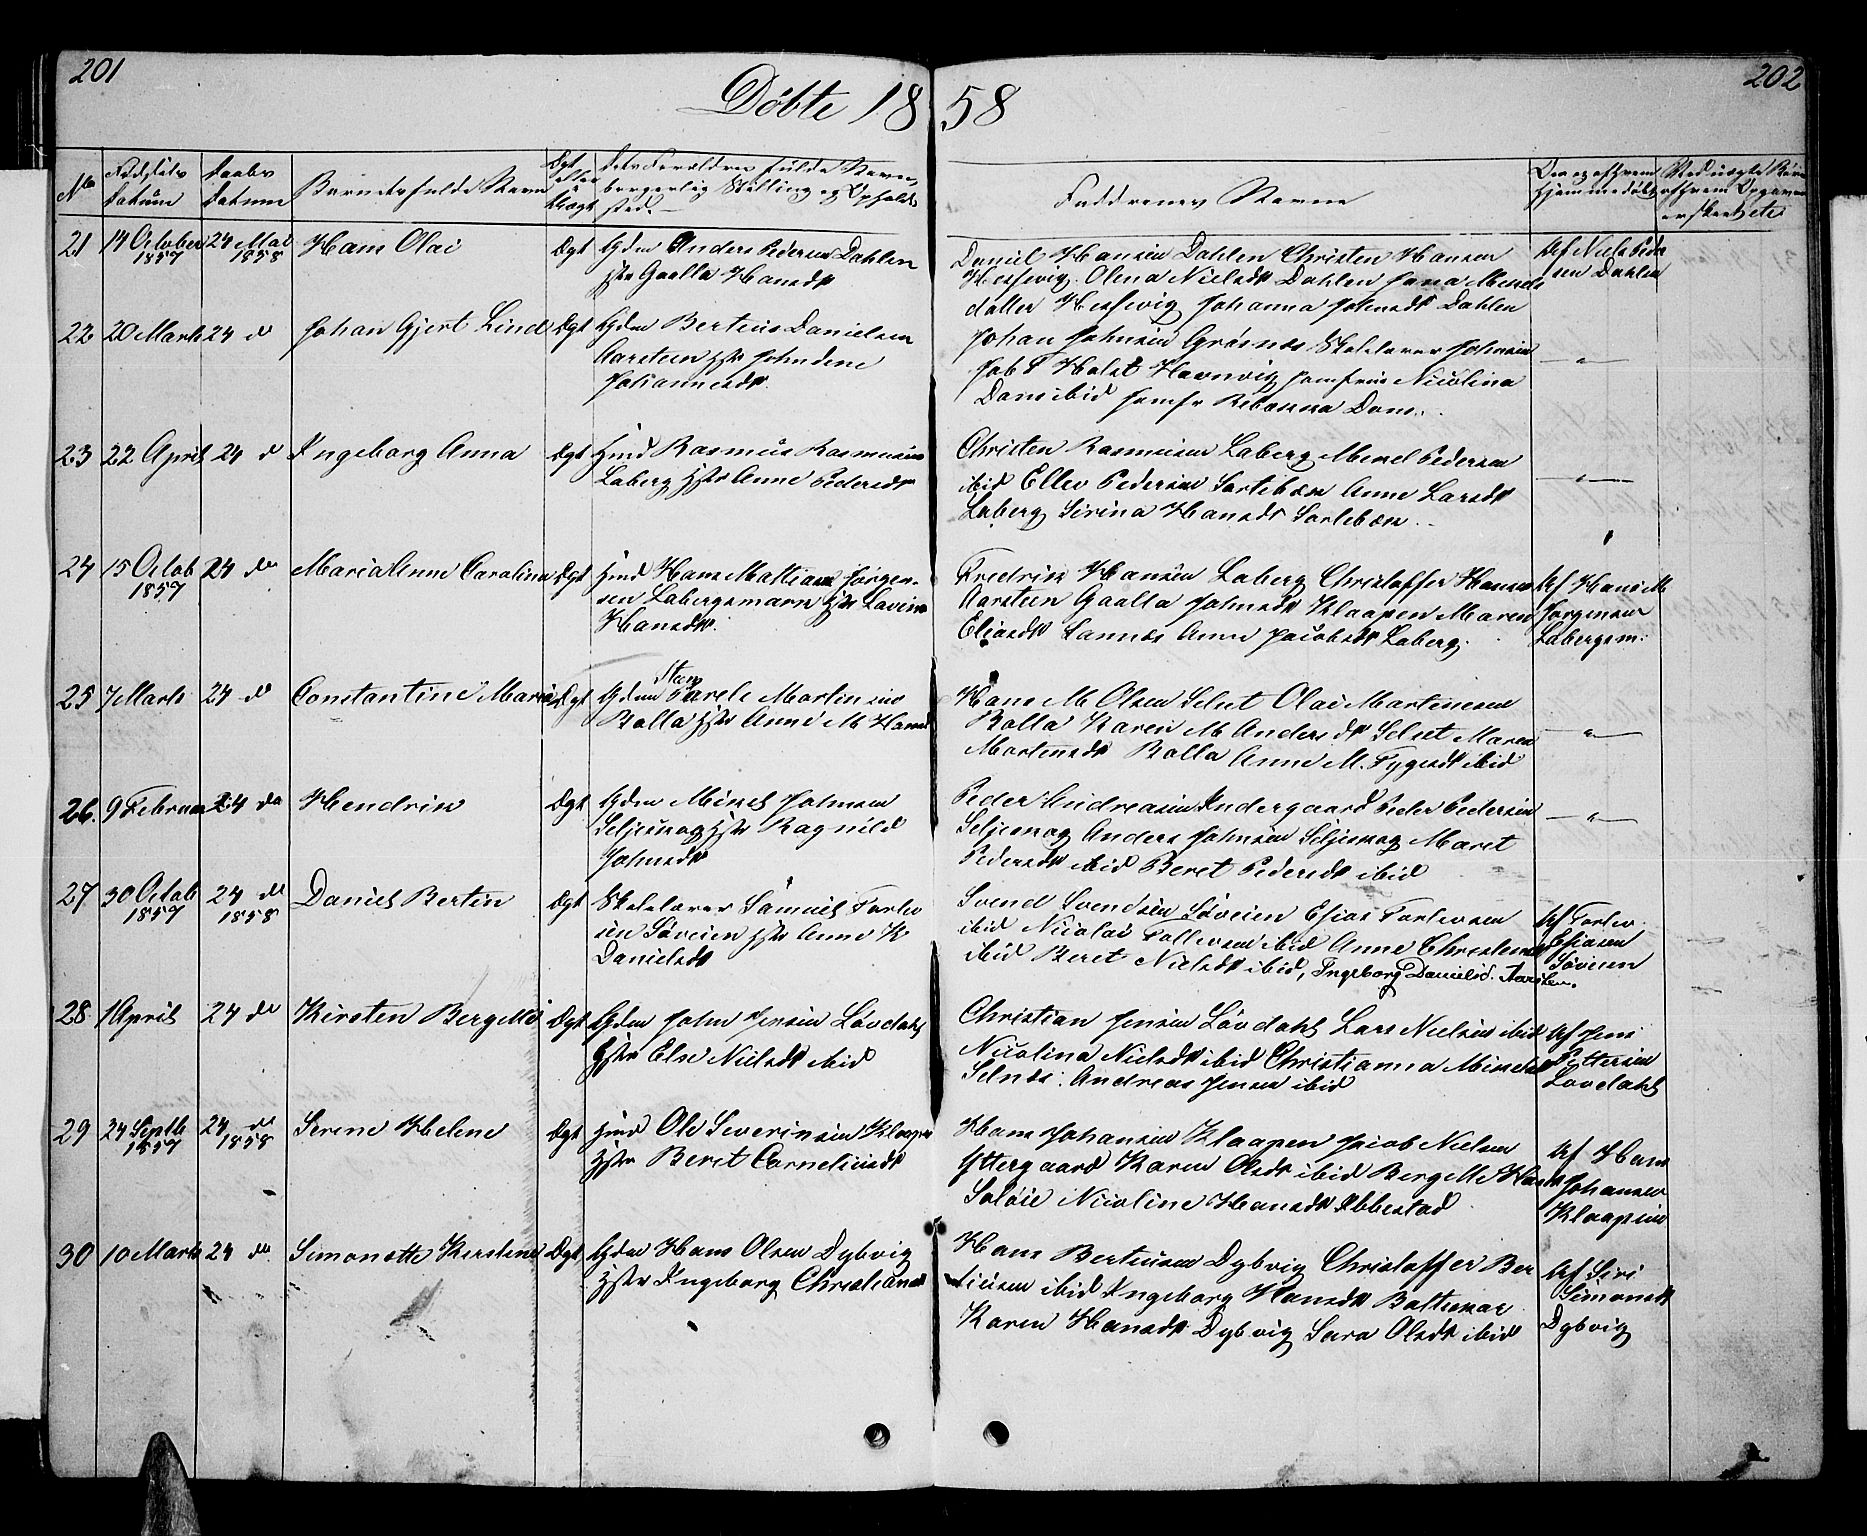 201
202
Döbte 18 58
No
Födsels Datum
Daabs Datum
Barnets fulde Navn
Ægt eller Uægt
Dets Forældres fulde Navn, borgerlig Stilling og Opholdssted.
Faddrenes Navne
21 14 October 1857 24 Mai 1858 Hans Olai Ægt Gdm Anders Pedersen Dahlen
Hstr Gaella Hansdt
Daniel Hansen Dahlen Christen Hansen
Olena Nielsdt Dahlen
Johanna Johnsdt Dahlen
Af Niels Peder
sen Dahlen
22 20 Marts 24 d Johan Gjert Lind Ægt Gdm Berteus Danielsen
Aarsteen Hstr
Johannesdt
Johan Johnsen Grösnes Skolelærer Johnsen
Holst Havnvig Jomfrue Nicolina
Dams ibid Jomfr Rebækka Dam.
— " —
23 22 April 24 d Ingeborg Anna Ægt Hmd Rasmus Rasmusen
Laberg Hstr Anne Pedersdt
Christen Rasmusen Laberg Mikel Pedersen
ibid Ellev Pedersen Anne Larsdt
Laberg Sirina Hansdt
— " —
24 15 Octob 1857 24 do Maria Anne Carolina Ægt Hmd Hans Mathias Jörgen-
sen Labergsmarn Hstr Lavina
Hansdt.
Fredrik Hansen Laberg Christoffer Hansen
Aarsteen Gaalla Johnsdt Klaapen Maren
Eliasdt Sannes Anne Jacobsdt Laberg.
Af Hans M
Jörgensen
Labergsm:
25 7 Marts 24 d Constantine Maria Ægt Gdm Parele Martinsen
Balla Hstr Anne M Hansd
Hans M Olsen Selset Olai Martinesen
Balla Karen M Andersdt Selset Maren
Mortensdt Balla Anne M. Tygesdt ibid
— " —
26. 9 Februar 24 do Hendrik Ægt Gdm Mikel Johnsen
Seljeskog Hstr Ragnild
Johnsdt
Peder Andreasen Indergaard Peder Pedersen
Seljeskog Anders Johnsen Seljeskog Maret
Pedersdt ibid Beret Pedersdt ibid
— " —
27 30 Octob 1857 24 do 1858 Daniel Bertin Ægt Skolelærer Samuel Torlev
sen Söveien Hstr Anne K
Danielsdt
Svend Svendsen Söveien Esias Torlevsen
ibid Nicolai Tollevsen ibid Anne Christensd
ibid Beret Nielsdt ibid, Ingeborg Danielsd. Aarsteen.
Af Torlev
Esiasen
Söveien
28 1 April 24 do Kirsten Bergette Ægt Gdm John Jensen Lövdahl
Hstr Else Nielsdt ibid
Christian Jensen Lövdahl Lars Nielsen ibid
Nicolina Nielsdt ibid Christianna Mikelsd
Selnes. Andreas Jensen ibid
Af Jens
Pettersen
Lövdahl
29 24 Septb 1857 24 do 1858 Serine Helene Ægt Hmd Ole Severinsen Klaapen
Hstr Beret Corneliusdt
Hans Johansen Klaapen Jacob Nielsen
Yttergaard Karen Olsdt ibid Bergette Hansdt
Salöie Nicoline Hansdt Ibbestad
Af Hans
Johansen
Klaapen
30 10 Marts 24 do Simonette Kirstine Ægt Gdm Hans Olsen Dybvig
Hstr Ingeborg Christiansd
Hans Berteusen Dybvig Christoffer Ber
teusen ibid Ingeborg Hansdt
Karen Hansdt Dybvig Sara Olsdt ibid
Af Siri
Simonsdt
Dybvig